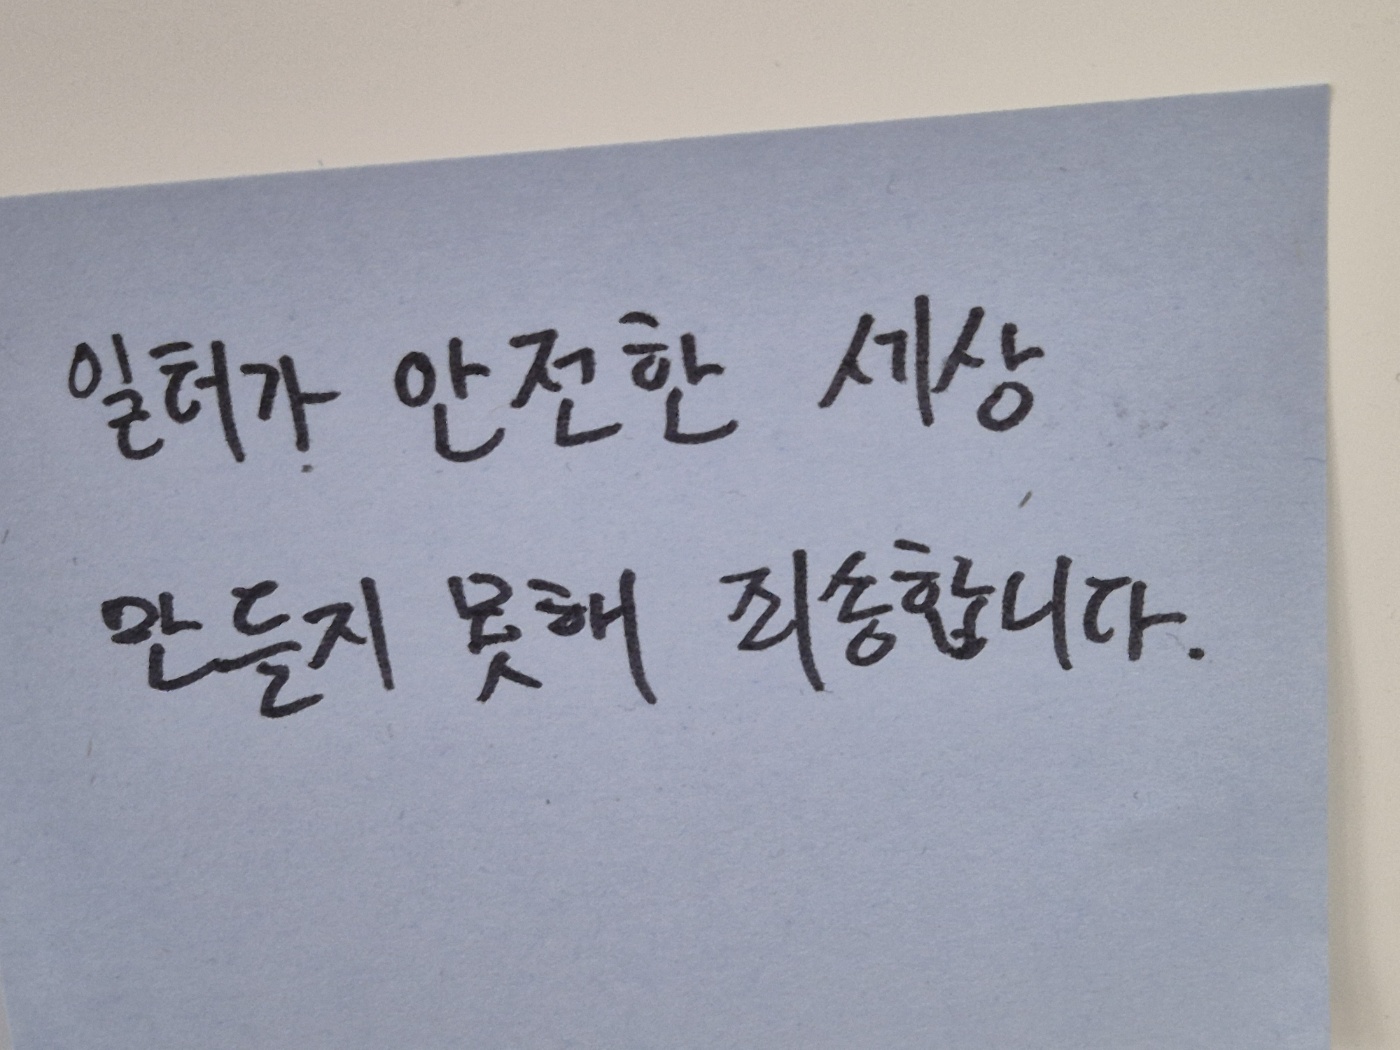 일터가 안전한 세상
만들지 못해 죄송합니다.